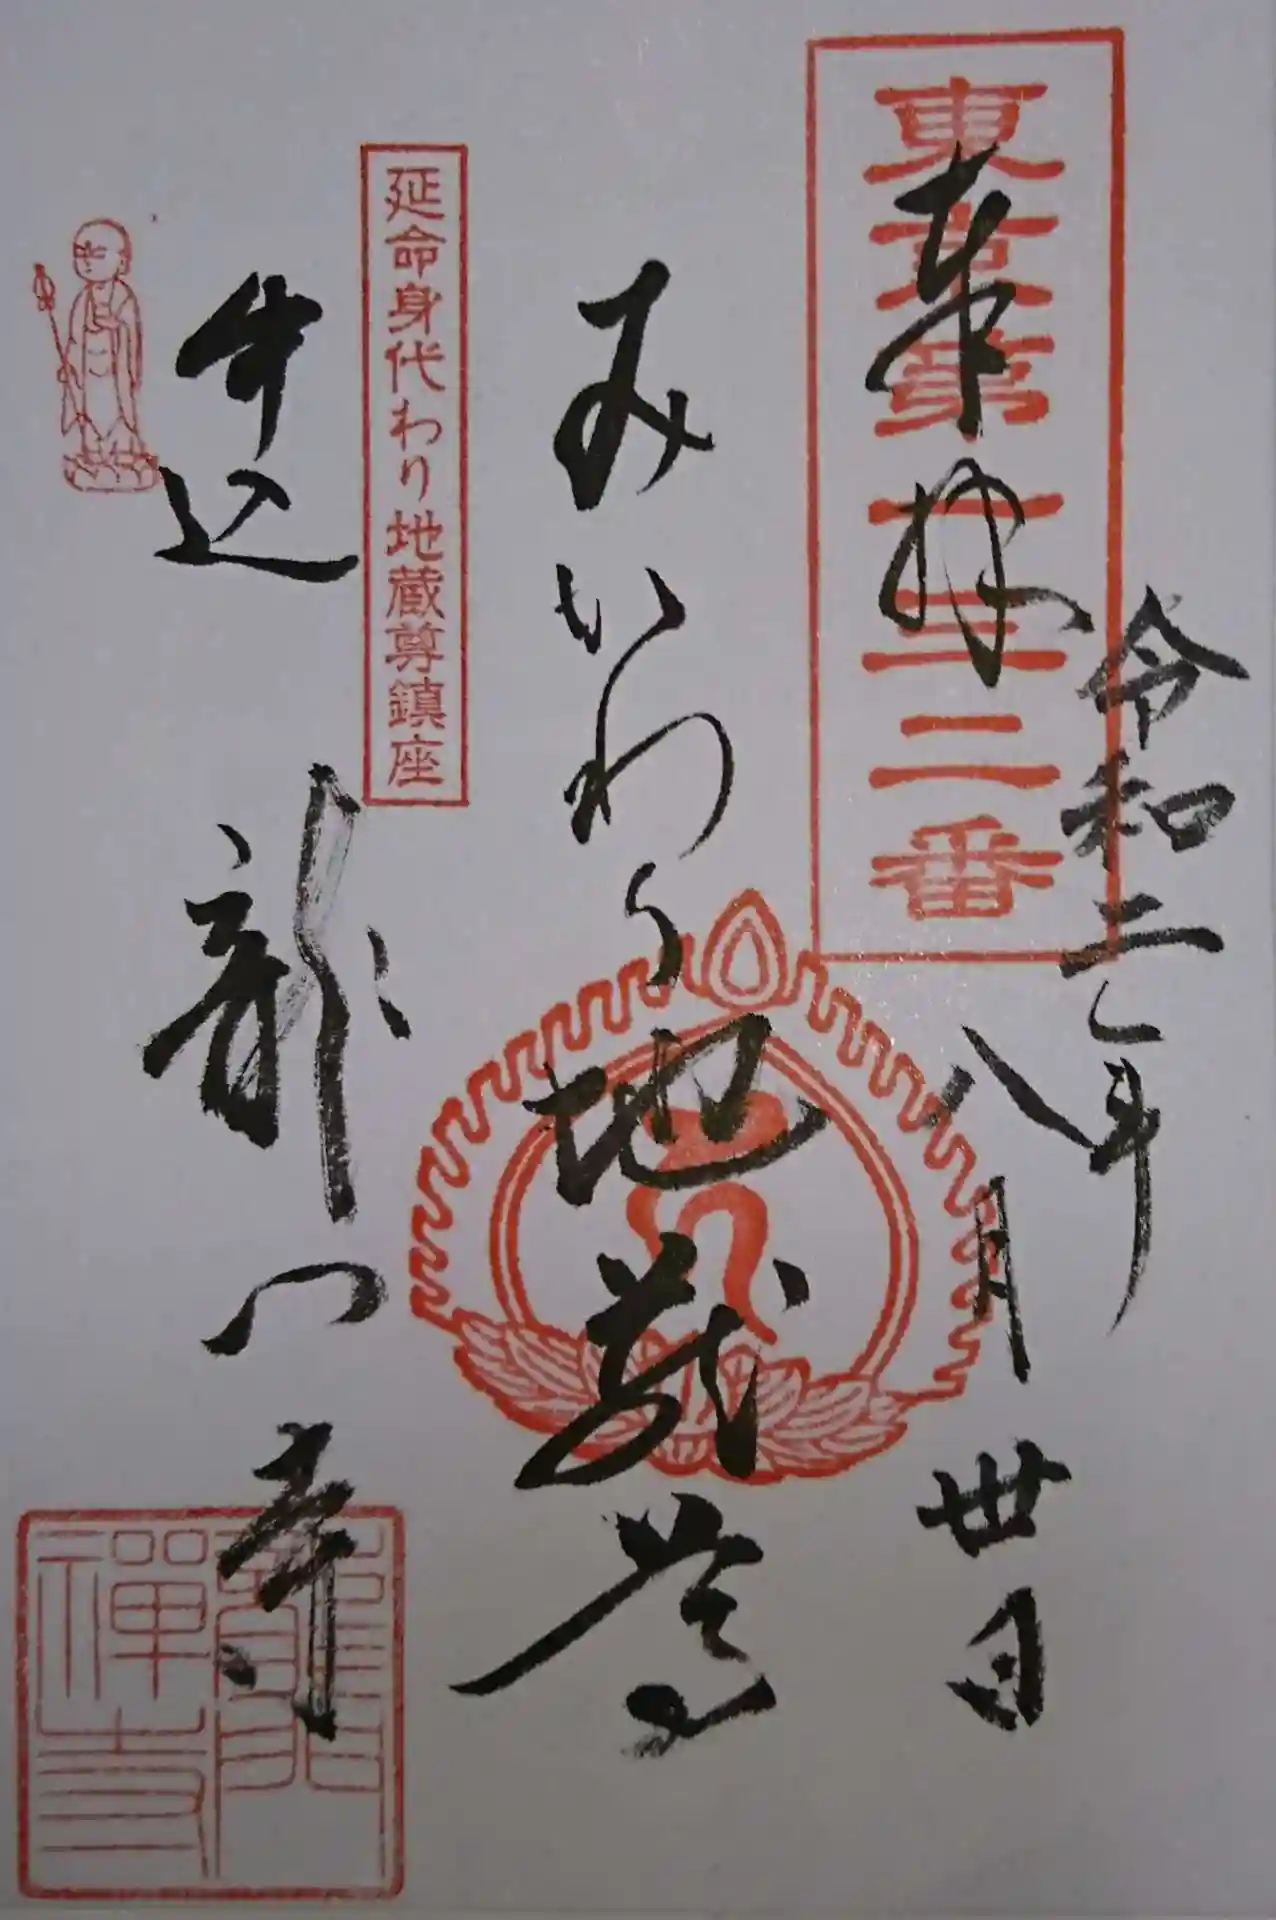 東京第三二番
奉拝
令和二年
八月卅日
みがわり地蔵尊
延命身代わり地蔵尊鎮座
牛込 龍門寺
龍門
禪寺